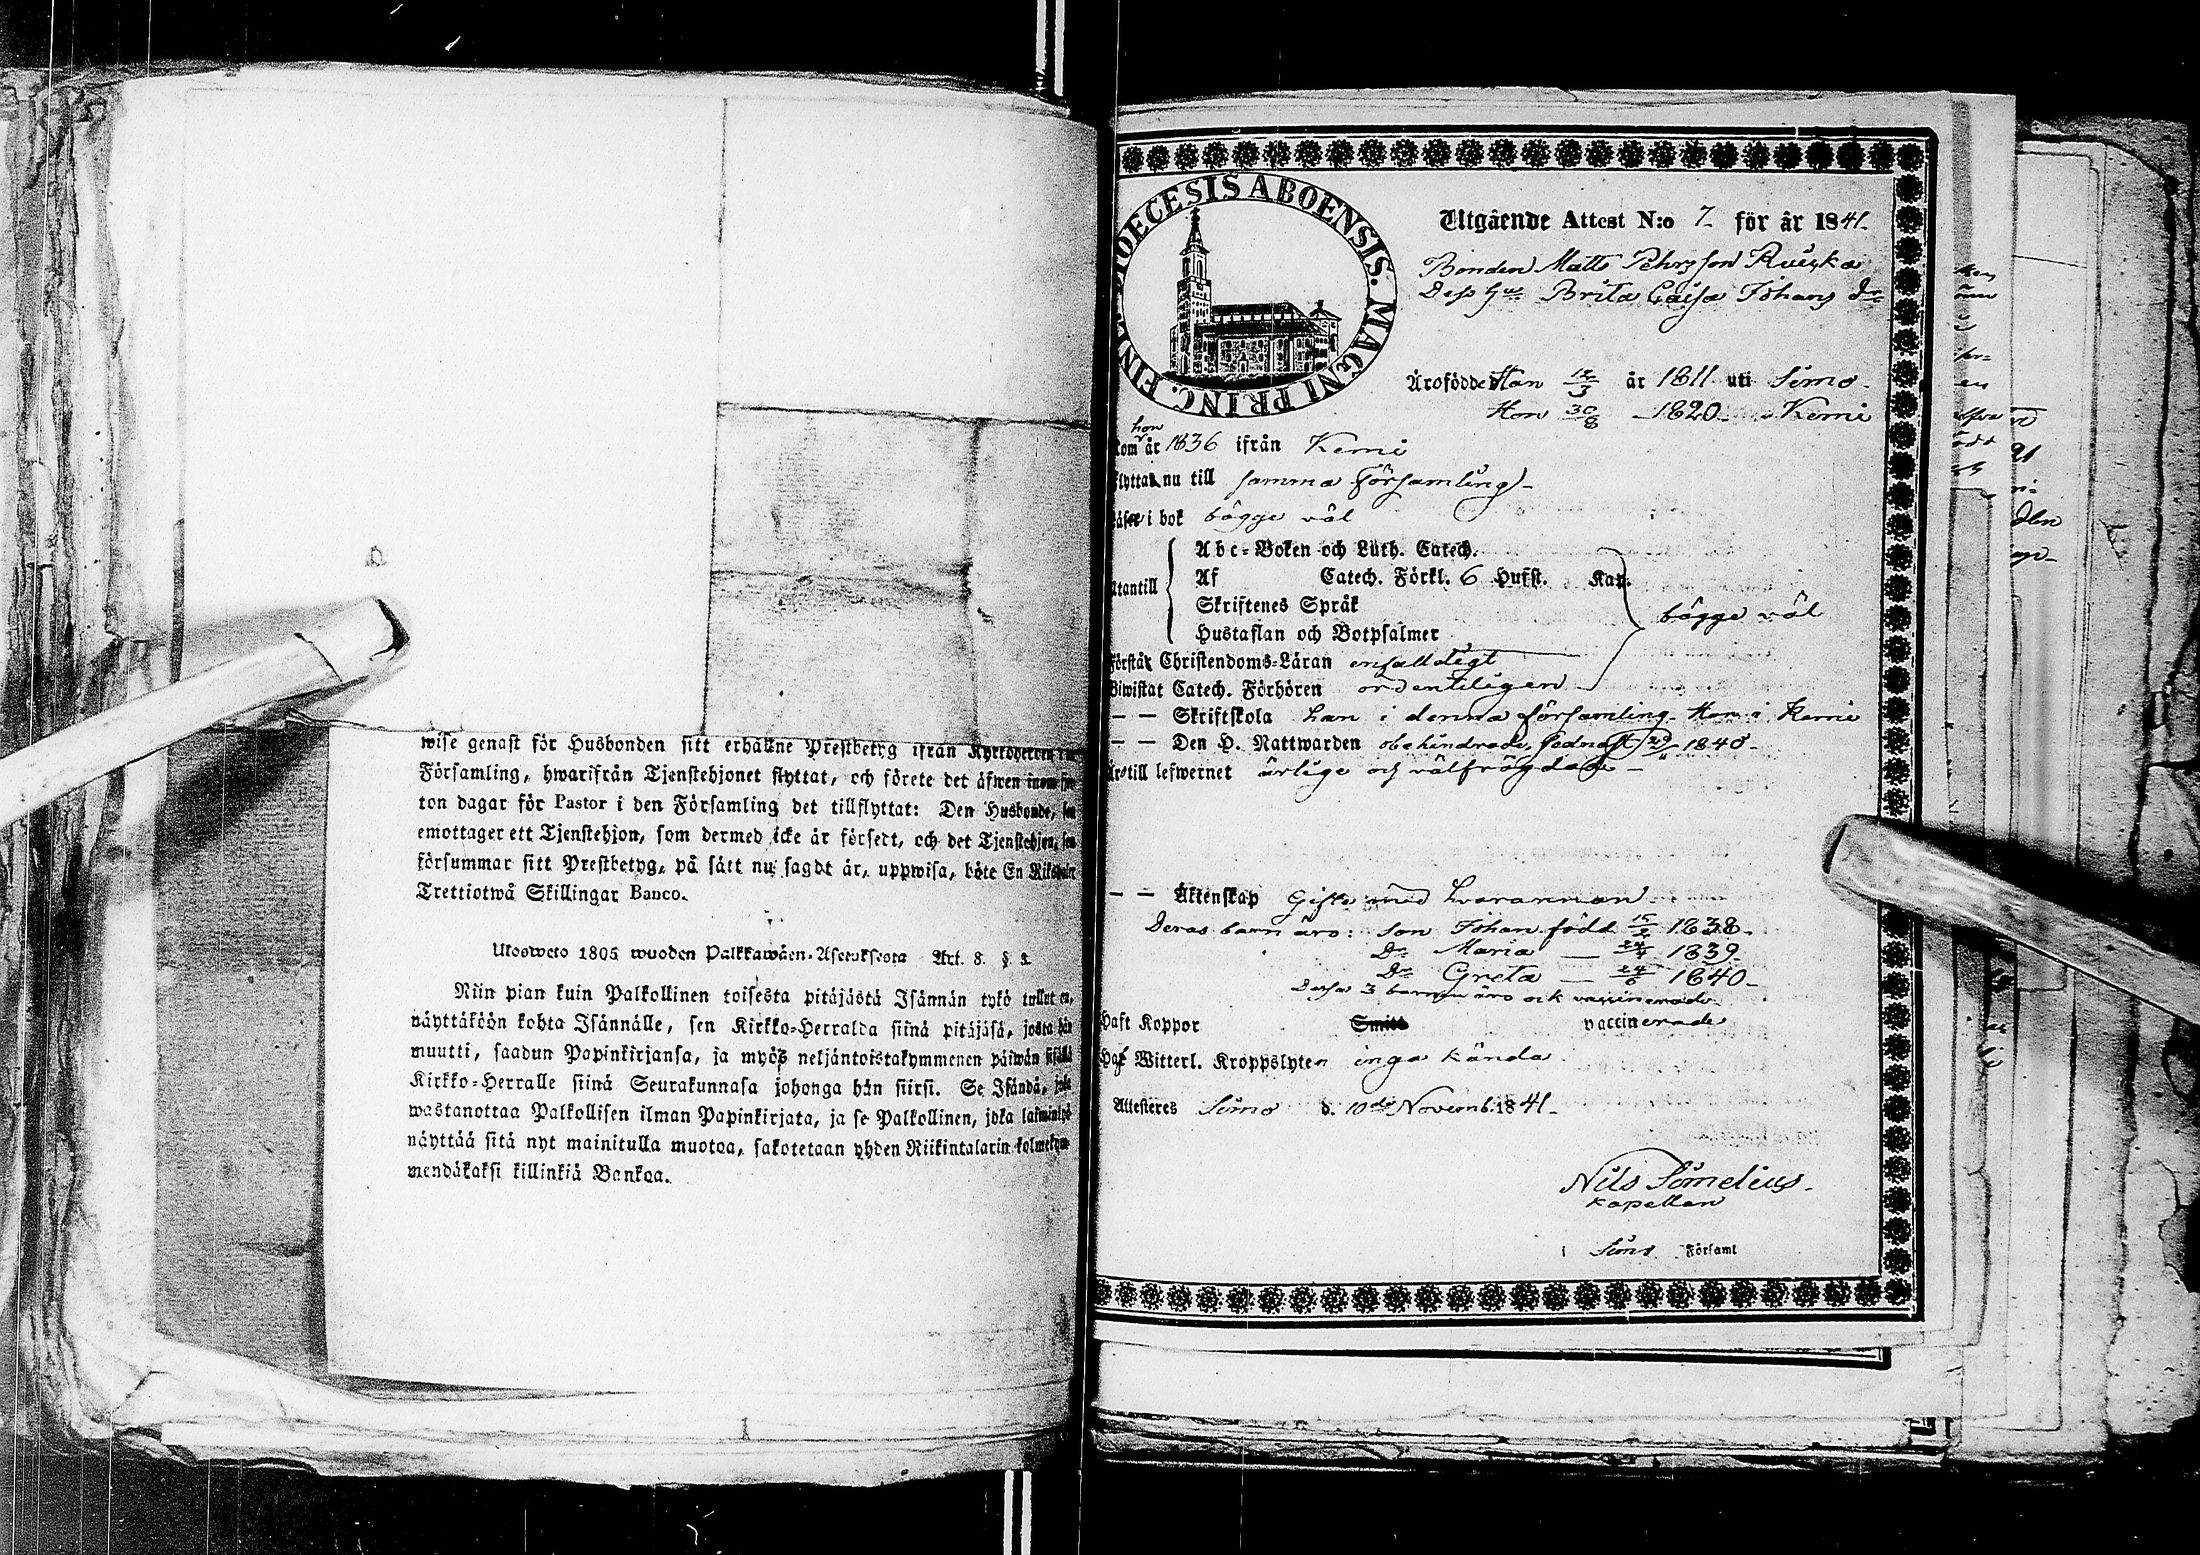 wise genast för Husbonden sitt erhållne Prestbetyg ifrån Kyrkoherden i
Församling, hwarifrån Tjenstehjonet flyttat, och förete det äfwen inom
ton dagar för Pastor i den Församling det tillflyttat: Den Husbonde,
emottager ett Tjenstehjon, som dermed icke är försedt, och det Tjenstehjon,
försummar sitt Prestbetyg, på sätt nu sagdt är, uppwisa, böte En Riksdaler
Trettiotwå Skillingar Banco.
Ulosweto 1805 wuoden Palkkawäen-Asetuksesta Art. 8. §
Niin pian kuin Palkollinen toisesta pitäjästä Isännän tykö tullut on,
näyttäköön kohta Isännälle, sen Kirkko-Herralda siinä pitäjäsä, josta hän
muutti, saadun Papinkirjansa, ja myös neljäntoistakymmenen päiwän sisällä
Kirkko-Herralle siinä Seurakunnasa johonga hän siirsi. Se Isändä, joka
wastanottaa Palkollisen ilman Papinkirjata, ja se Palkollinen, joka laiminlyö
näyttää sitä nyt mainitulla muotoa, sakotetaan yhden Riikintalarin kolmekym-
mendäkaksi killinkiä Bankoa.
DIOECESIS ABOENSIS. MAGNI PRINC. FINL.
Utgående Attest N:o 7 för år 1841.
Bonden Matts Pehrsson Ruiska
Dess Hu Brita Caisa Johans dr
Äro födde Han 12/3 år 1811 uti Simo
Hon 30/8 1820 Kemi
hon
kom år 1836 ifrån Kemi
flyttat nu till samma församling
Läser i bok bägge väl
Utantill
Abc-Boken och Luth. Catech.
Af Catech. Förkl. 6 Hufst. Kap.
Skriftenes Språk
Hustaflan och Botpsalmer
bägge väl
Förstår Christendoms-Läran enfaldigt
Biwistat Catech. Förhören ordentligen
— — Skriftskola han i denna församling Hon i Kemi
— — Den H. Nattwarden obehindrade, sednast 1840
Äro till lefwernet ärlige och välfrägdade
— — Äktenskap Gifte med hvarannan
Deras barn äro: Son Johan född 15/2 1838
Dr Maria — 24/4 1839
Dr Greta — 24/6 1840
Dessa 3 barnen äro ock vaccinerade
Haft Koppor Smitt vaccinerade
Haf Witterl. Kroppslyten inga kända
Attesteres Simo d. 10de Novemb. 1841
Nils Simelius
Kapellan
i Simo Församl